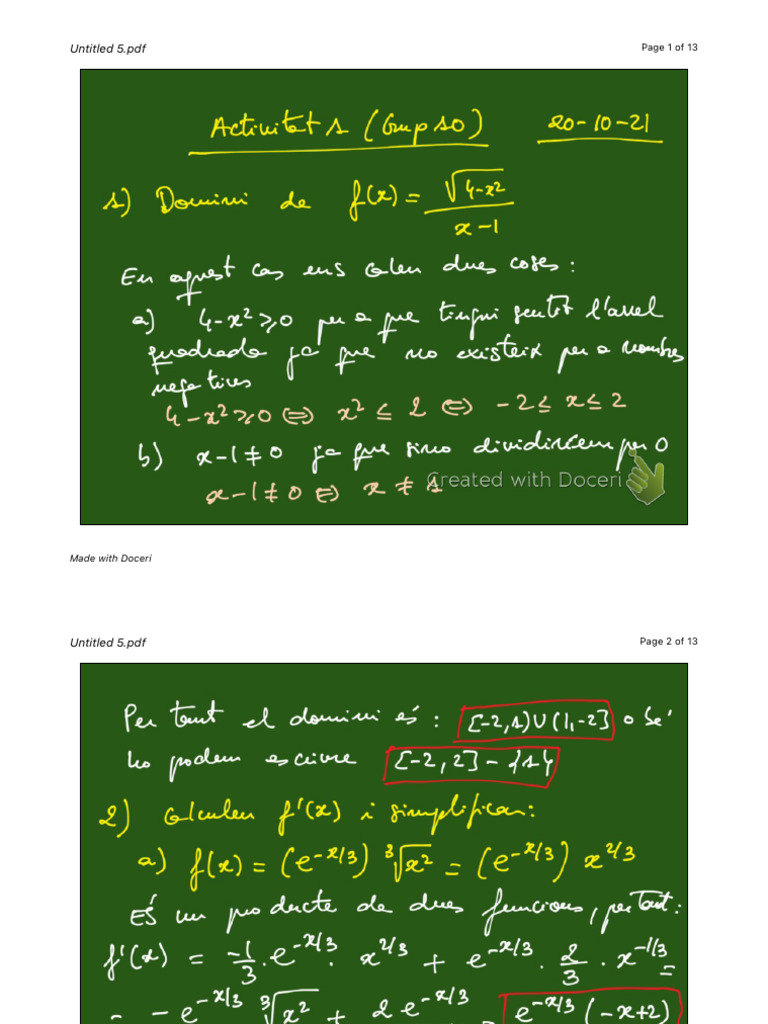 Untitled 5.pdf Page 1 of 13
Activitat 1 (Grup 10) 20-10-21
1) Domini de f(x) = √(4-x²) / (x-1)
En aquest cas ens calen dues coses:
a) 4-x² ≥ 0 per a que tingui sentit l'arrel
quadrada ja que no existeix per a nombres
negatius
4-x² ≥ 0 ⇔ x² ≤ 2 ⇔ -2 ≤ x ≤ 2
b) x-1 ≠ 0 ja que sino dividiríem per 0
x-1 ≠ 0 ⇔ x ≠ 1
Created with Doceri
Made with Doceri
Untitled 5.pdf Page 2 of 13
Per tant el domini és: [-2,1)∪(1,-2] o bé
ho podem escriure [-2,2] - {1}
2) Calculeu f'(x) i simplifiqueu:
a) f(x) = (e^(-x/3)) ∛x² = (e^(-x/3)) x^(2/3)
És un producte de dues funcions, per tant:
f'(x) = -1/3 · e^(-x/3) · x^(2/3) + e^(-x/3) · 2/3 · x^(-1/3) =
= -e^(-x/3) ∛x² + 2e^(-x/3) = e^(-x/3) (-x+2)